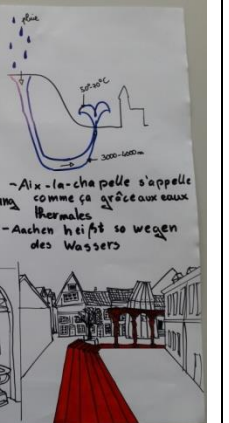 pluie
50°-70°C
3000-4000m
-Aix-la-chapelle s'appelle
comme ça grâce aux eaux
thermales
-Aachen heißt so wegen
des Wassers